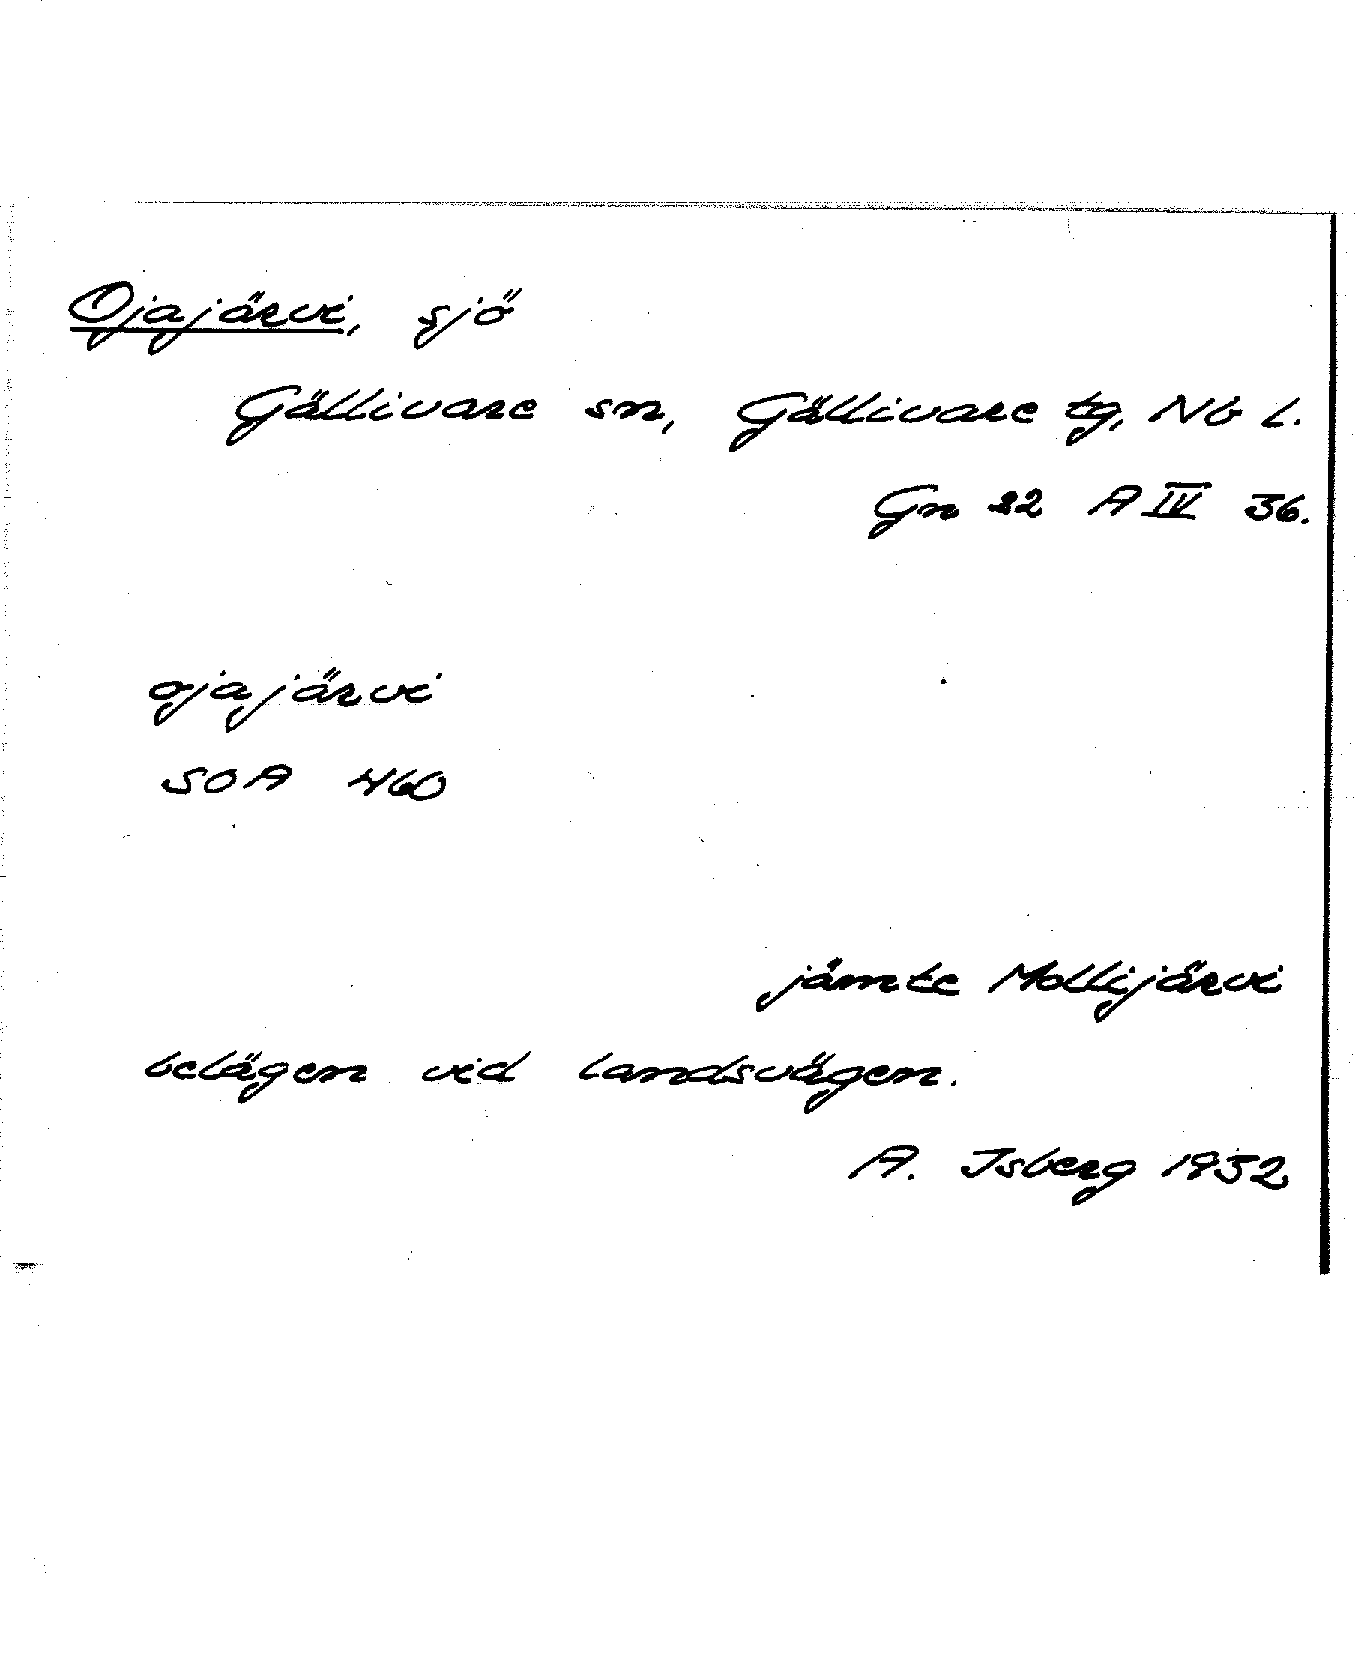 Ojajärvi, sjö
Gällivare sn, Gällivare tg, Nb l.
Gn 22 A IV 36.
ojajärvi
SOA 460
jämte Mollijärvi
belägen vid landsvägen.
A. Isberg 1932